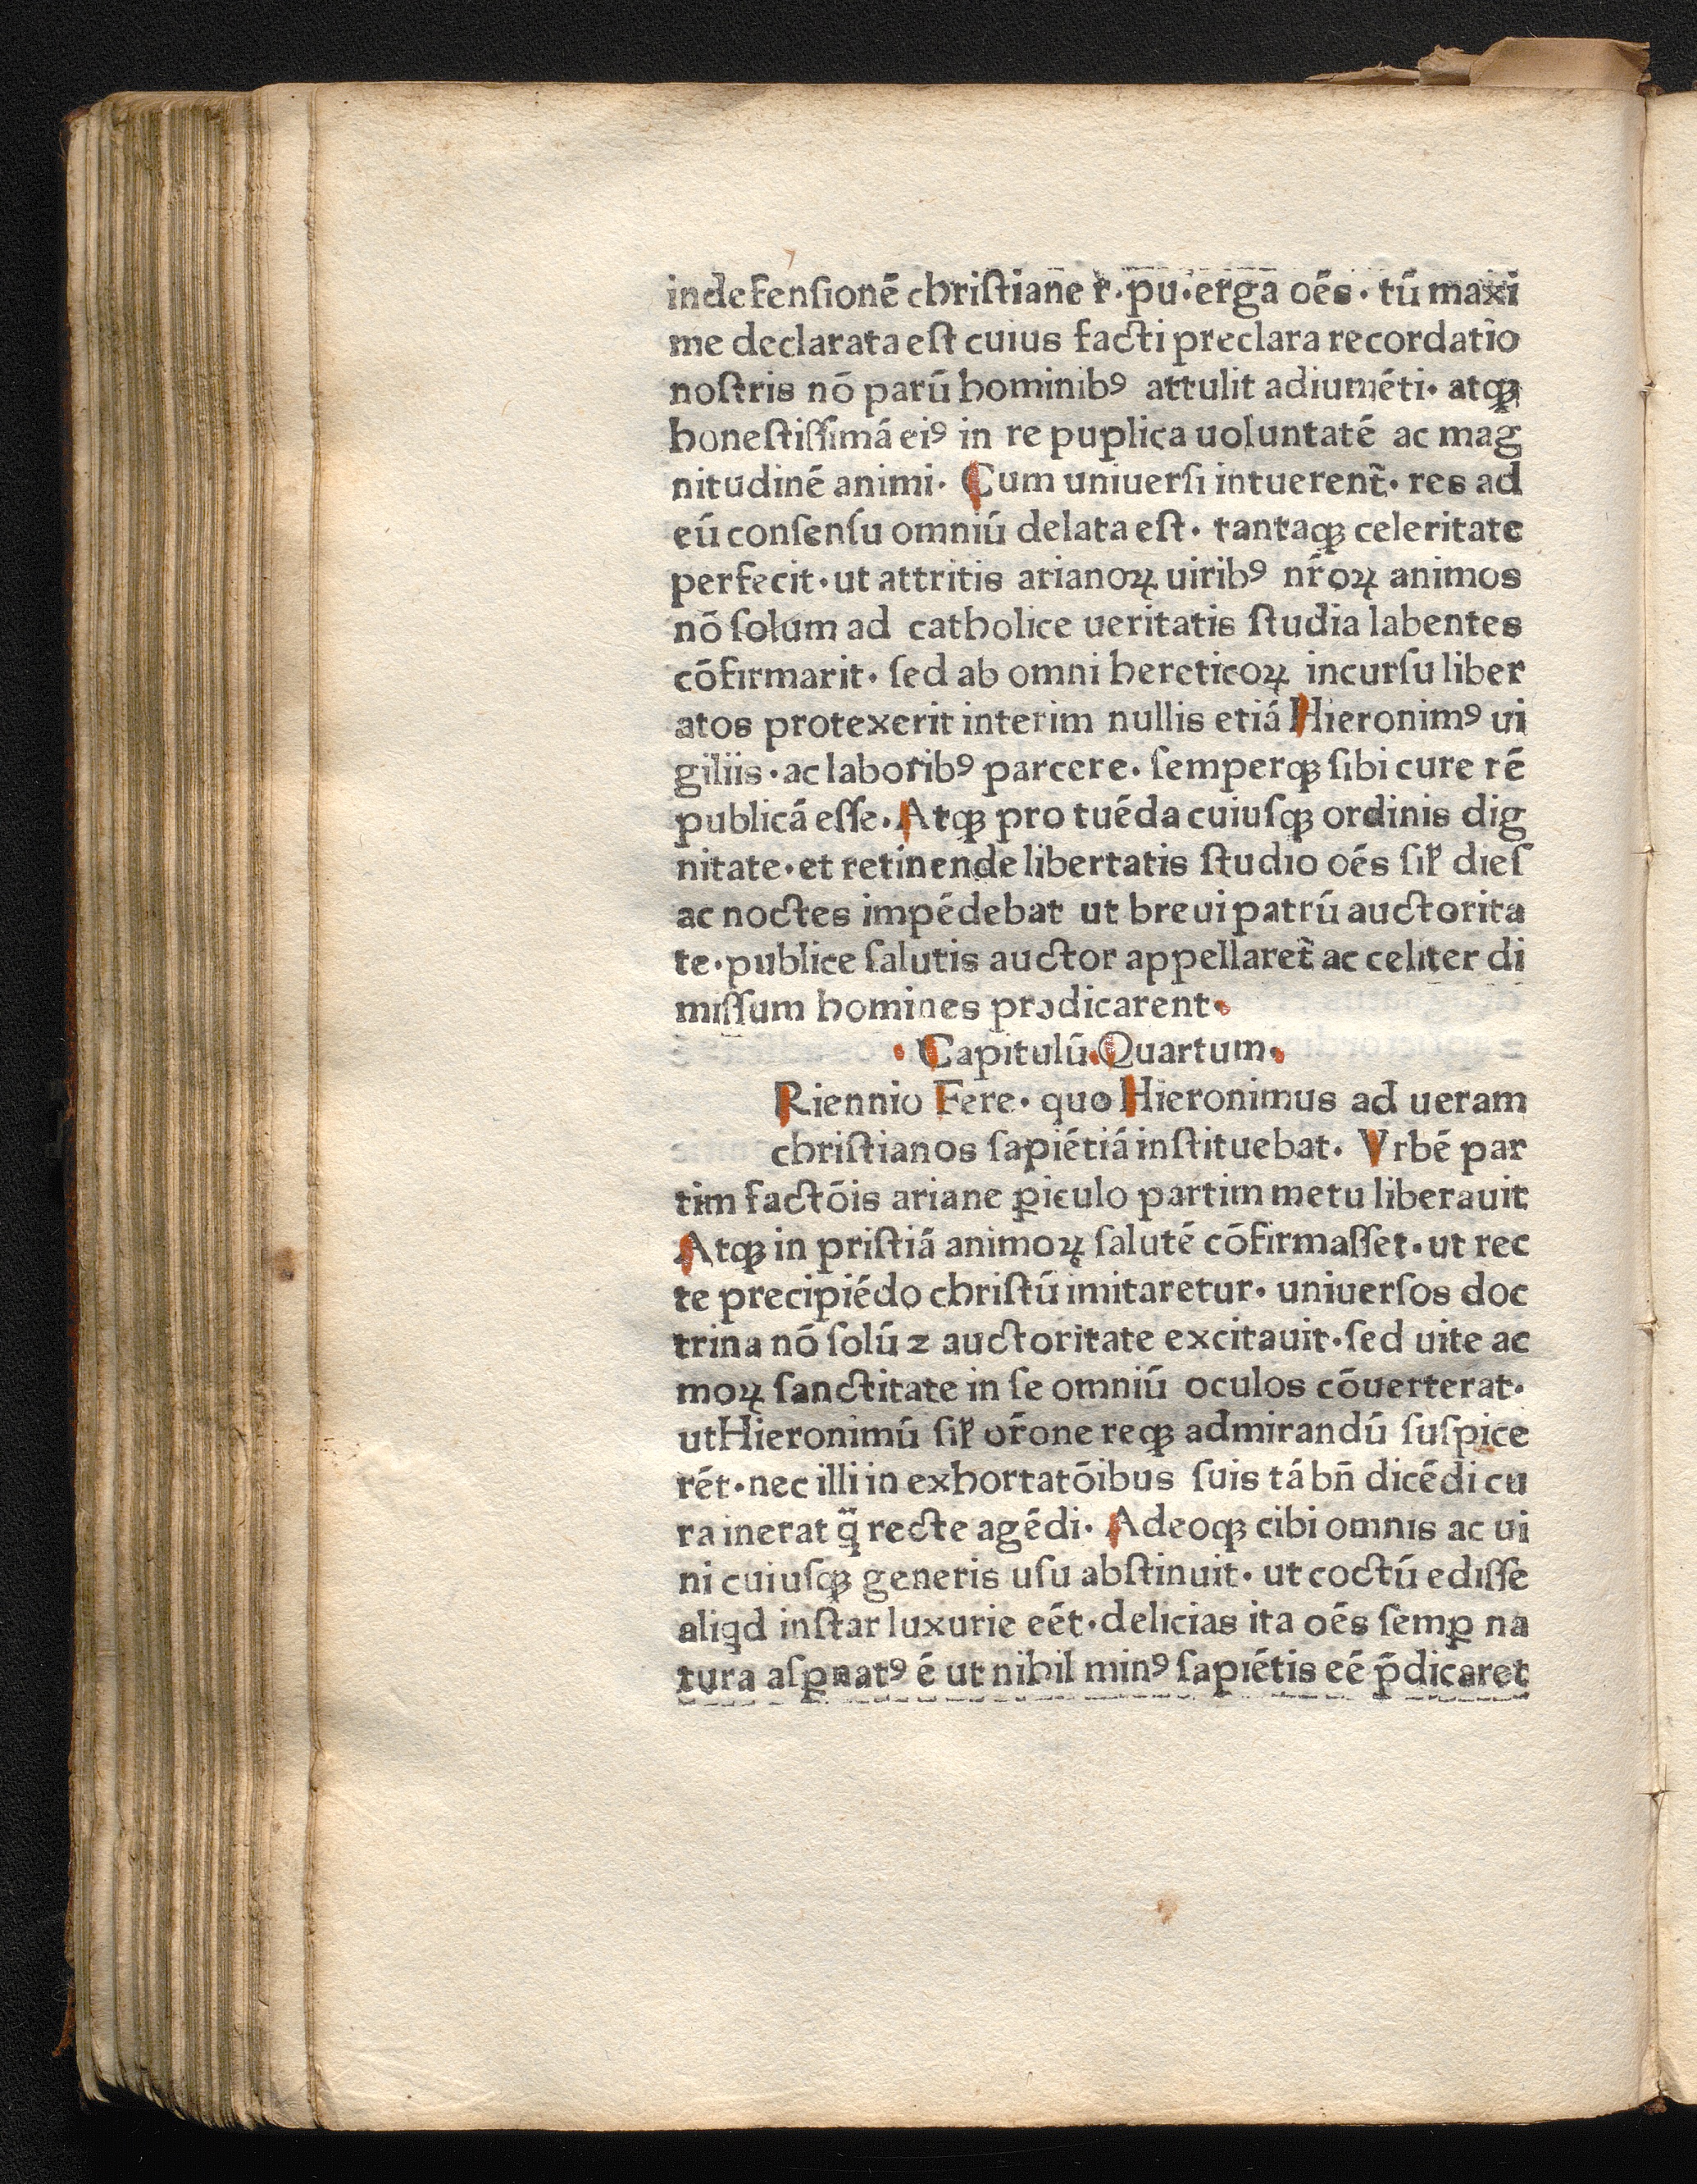 indefenſionē chriſtiane r̃·pu·erga oēs· tū maxi
me declarata eſt cuius facti preclara recordatio
noſtris nō parū hominibꝰ attulit adiumēti· atqꝫ
honeſtiſſimā eiꝰ in re puplica uoluntatē ac mag
nitudinē animi· Cum uniuerſi intuerent̃· res ad
eū conſenſu omniū delata eſt· tantaqꝫ celeritate
perfecit·ut attritis arianoꝝ uiribꝰ nr̃oꝝ animos
nō ſolum ad catholice ueritatis ſtudia labentes
cōfirmarit· ſed ab omni hereticoꝝ incurſu liber
atos protexerit interim nullis etiā Hieronimꝰ ui
giliis·ac laboribꝰ parcere· ſemperqꝫ ſibi cure rē
publicā eſſe· Atqꝫ pro tuēda cuiuſqꝫ ordinis dig
nitate·et retinende libertatis ſtudio oēs ſil̉ dieſ
ac noctes impēdebat ut breui patrū auctorita
te·publice ſalutis auctor appellaret̃ ac celiter di
miſſum homines prɔdicarent·
·Capitulū·Quartum·
Riennio Fere· quo Hieronimus ad ueram
chriſtianos ſapiētiā inſtituebat· Vrbē par
tim factōis ariane ꝑiculo partim metu liberauit
Atqꝫ in priſtiā animoꝝ ſalutē cōfirmaſſet·ut rec
te precipiēdo chriſtū imitaretur· uniuerſos doc
trina nō ſolū ꝛ auctoritate excitauit·ſed uite ac
moꝝ ſanctitate in ſe omniū oculos cōuerterat·
utHieronimū ſil̉ or̃one reqꝫ admirandū ſuſpice
rēt·nec illi in exhortatōibus ſuis tā bn̄ dicēdi cu
ra inerat q̃ recte agēdi· Adeoqꝫ cibi omnis ac ui
ni cuiuſqꝫ generis uſu abſtinuit· ut coctū ediſſe
aliqd inſtar luxurie eēt·delicias ita oēs ſemꝑ na
tura aſꝑnatꝰ ē ut nihil minꝰ ſapiētis eē p̄dicaret